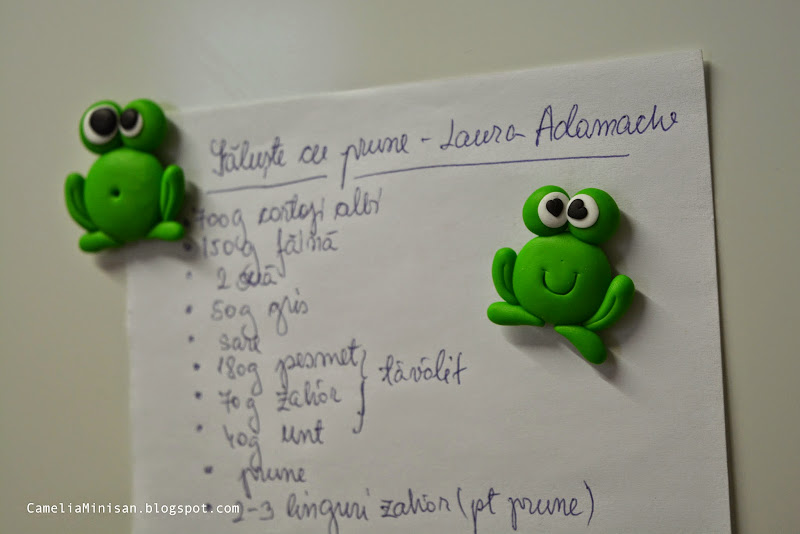 Găluște cu prune - Laura Adamache
• 700g cartofi albi
• 150g făină
• 2 ouă
• 50g gris
• sare
• 180g pesmet
• 70g zahăr } tăvălit
• 40g unt
• prune
• 2-3 linguri zahăr (pt prune)
CameliaMinisan.blogspot.com